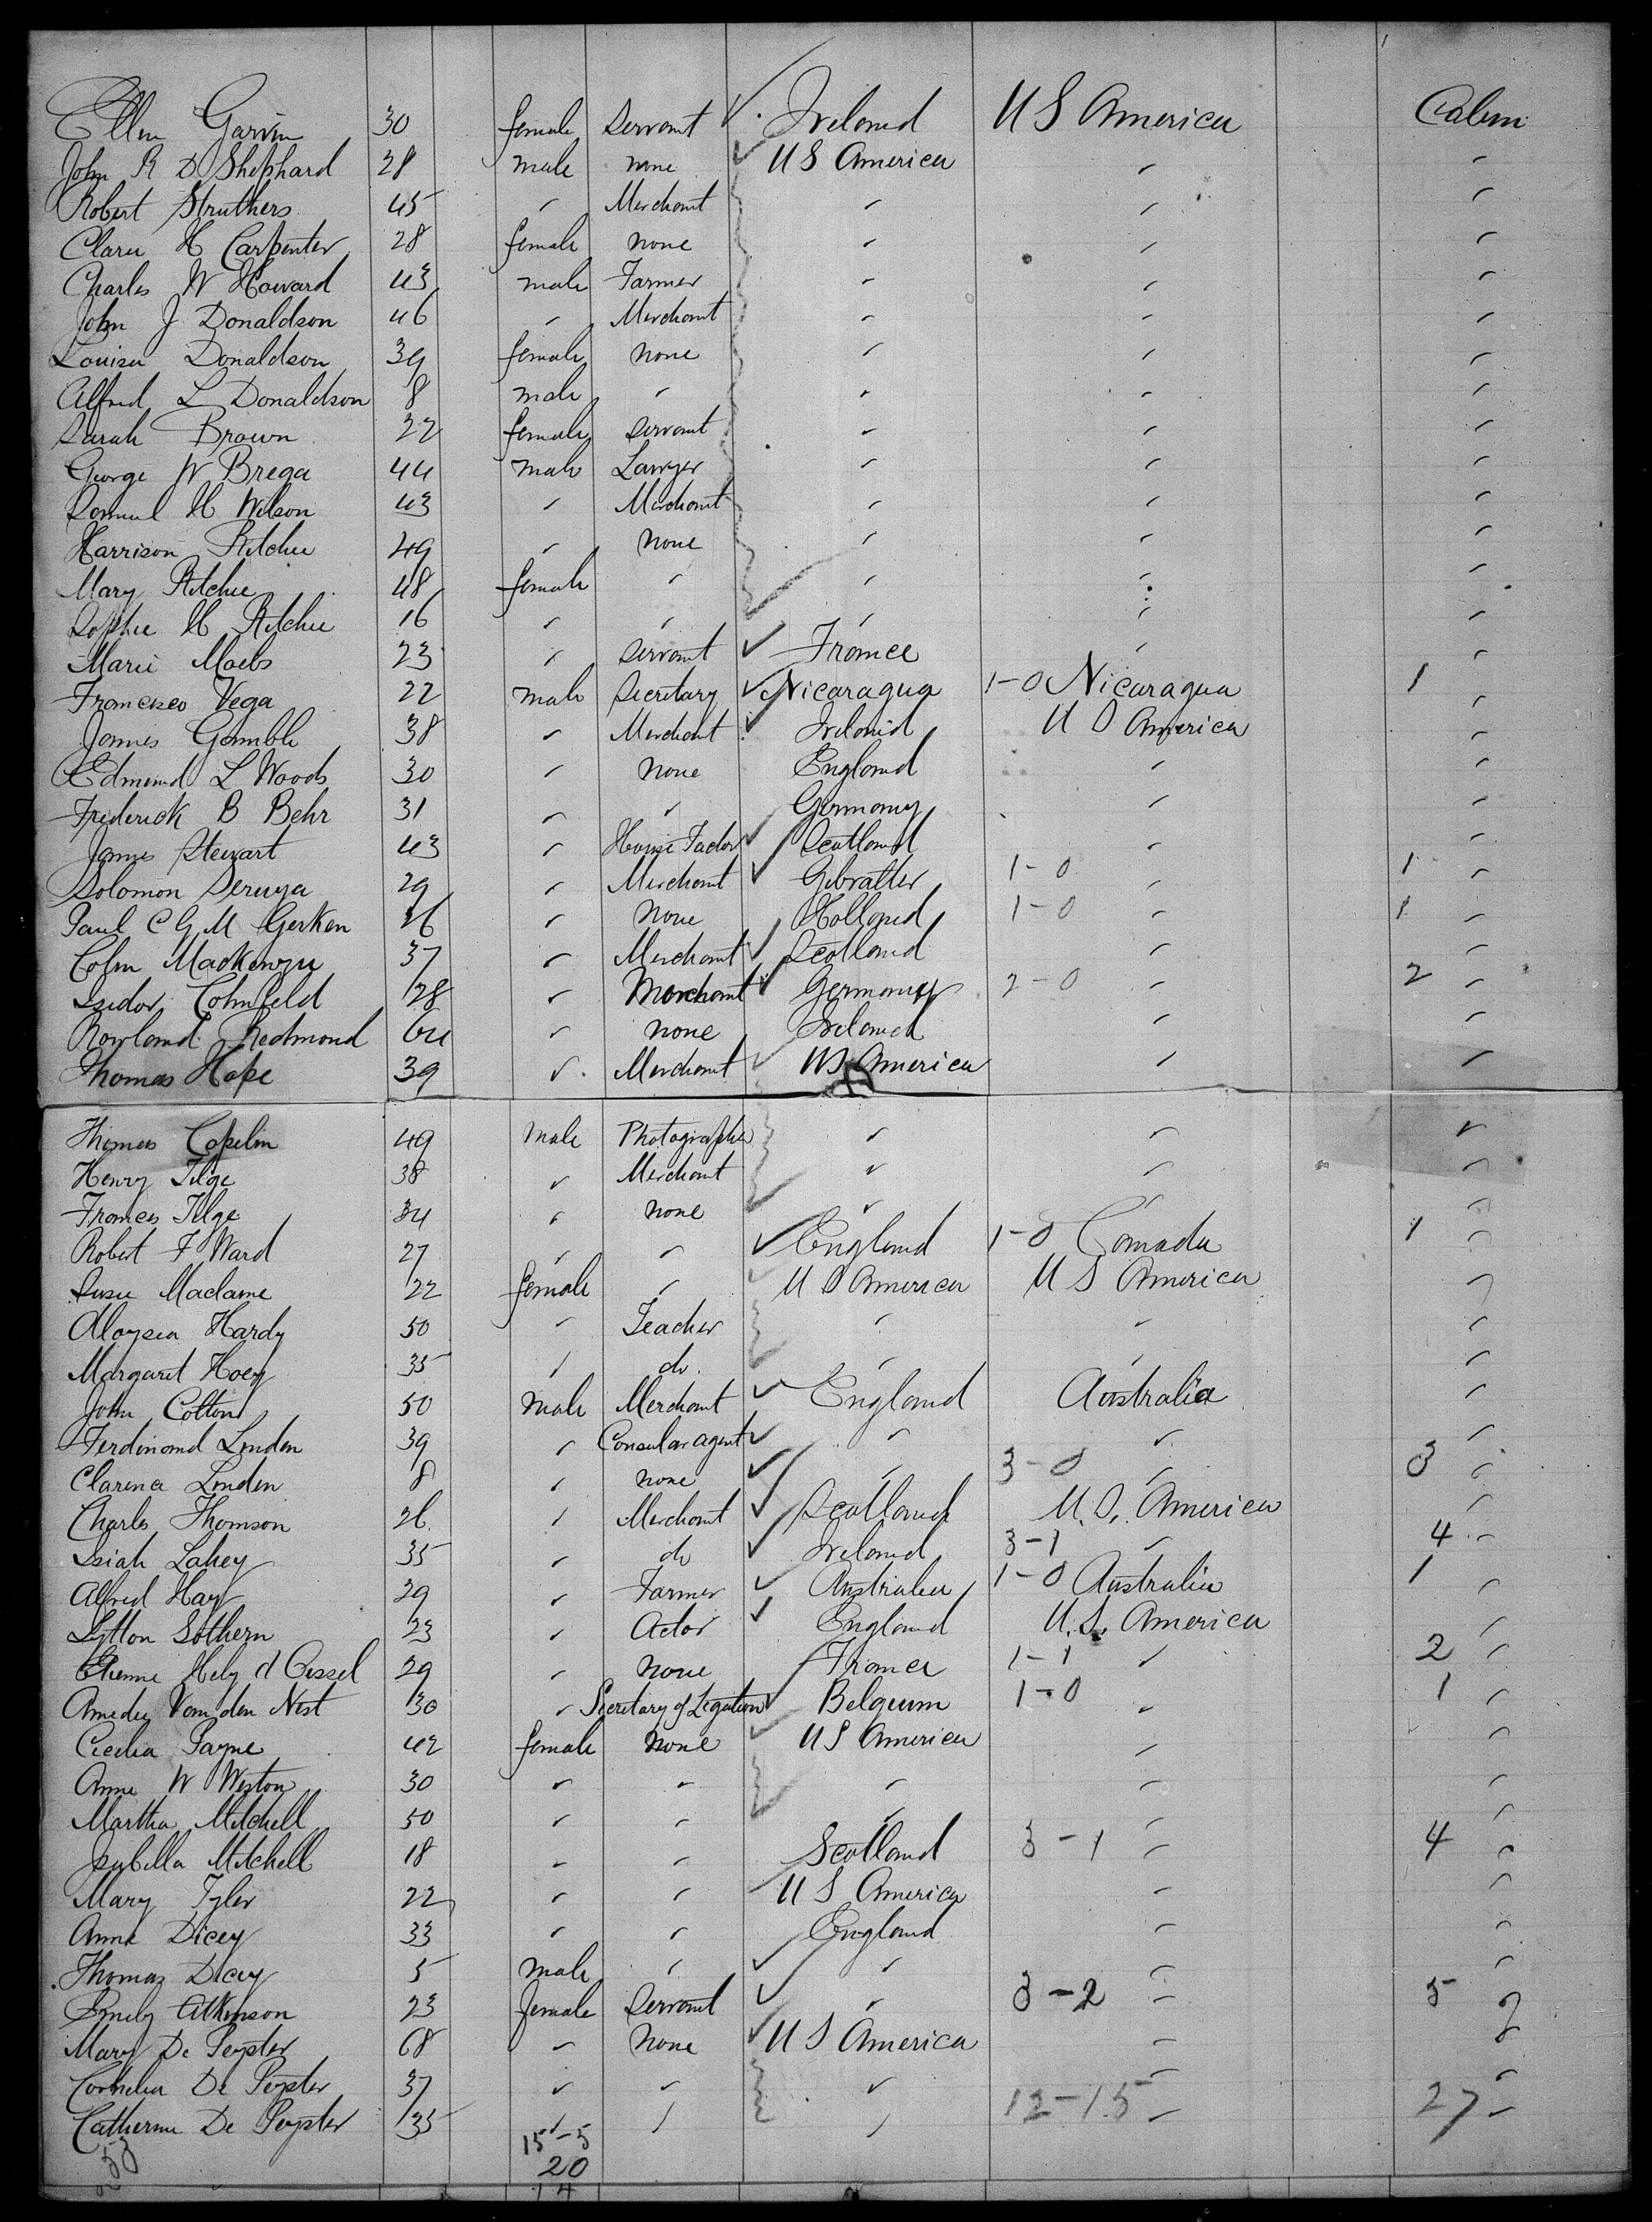 Ellen Garvin 30 female Servant Ireland U S America Cabin
John R D Shephard 28 male none U S America " "
Robert Struthers 45 " Merchant " " "
Clara H Carpenter 28 female none " " "
Charles W Howard 43 male Farmer " " "
John J Donaldson 46 " Merchant " " "
Louisa Donaldson 39 female none " " "
Alfred L Donaldson 8 male " " " "
Sarah Brown 22 female Servant " " "
George W Brega 44 male Lawyer " " "
H Wilson 43 " Merchant " " "
Harrison Ritchie 49 " none " " "
Mary Ritchie 48 female " " " "
Sophie H Ritchie 16 " " " " "
Marie Maebs 23 " Servant France " "
Francisco Vega 22 male Secretary Nicaragua 1-0 Nicaragua 1 "
James Gamble 38 " Merchant Ireland U S America "
Edmund L Woods 30 " none England " "
Frederick B Behr 31 " " Germany " "
James Stewart 43 " Scotland " "
Solomon Seruya 29 " Merchant Gibralter 1-0 " 1 "
Paul C G M Gerken 26 " none Holland 1-0 " 1 "
Colin Mackenzie 37 " Merchant Scotland " "
Isidor Cohnfeld 28 " Merchant Germany 2-0 " 2 "
Rowland Redmond 64 " none Ireland " "
Thomas Hope 39 " Merchant U S America " "
Thomas Copelin 49 male Photographer " " "
Henry Tilge 38 " Merchant " " "
Frances Tilge 34 " none " " "
Robert F Ward 27 " " England 1-0 Canada 1 "
Susie Madame 22 female " U S America U S America "
Aloysia Hardy 50 " Teacher " " "
Margaret Hoey 35 " do " " "
John Cotton 50 male Merchant England Australia "
Ferdinand London 39 " Consular agent " " "
Clarence London 8 " none " 3-0 " 3 "
Charles Thomson 26 " Merchant Scotland U.S. America "
Isiah Lahey 35 " do Ireland 3-1 " 4 "
Alfred Hay 29 " Farmer Australia 1-0 Australia 1 "
Lytton Sothern 23 " Actor England U.S. America "
Etienne Hely d' 29 " none France 1-1 " 2 "
Amedee Van den Nest 30 " Secretary of Legation Belgium 1-0 " 1 "
Cecelia Payne 42 female none U S America " "
Anna W Weston 30 " " " " "
Martha Mitchell 50 " " " " "
Isabella Mitchell 18 " " Scotland 3-1 " 4 "
Mary Tyler 22 " " U S America " "
Anna Dicey 33 " " England " "
Thomas Dicey 5 male " " " "
Emily Atkinson 23 female Servant " 3-2 " 5 "
Mary De Peyster 68 " none U S America " "
Cornelia De Peyster 37 " " " " "
Catherine De Peyster 35 " " " 12-15 " 27 "
53 15-5
20
14